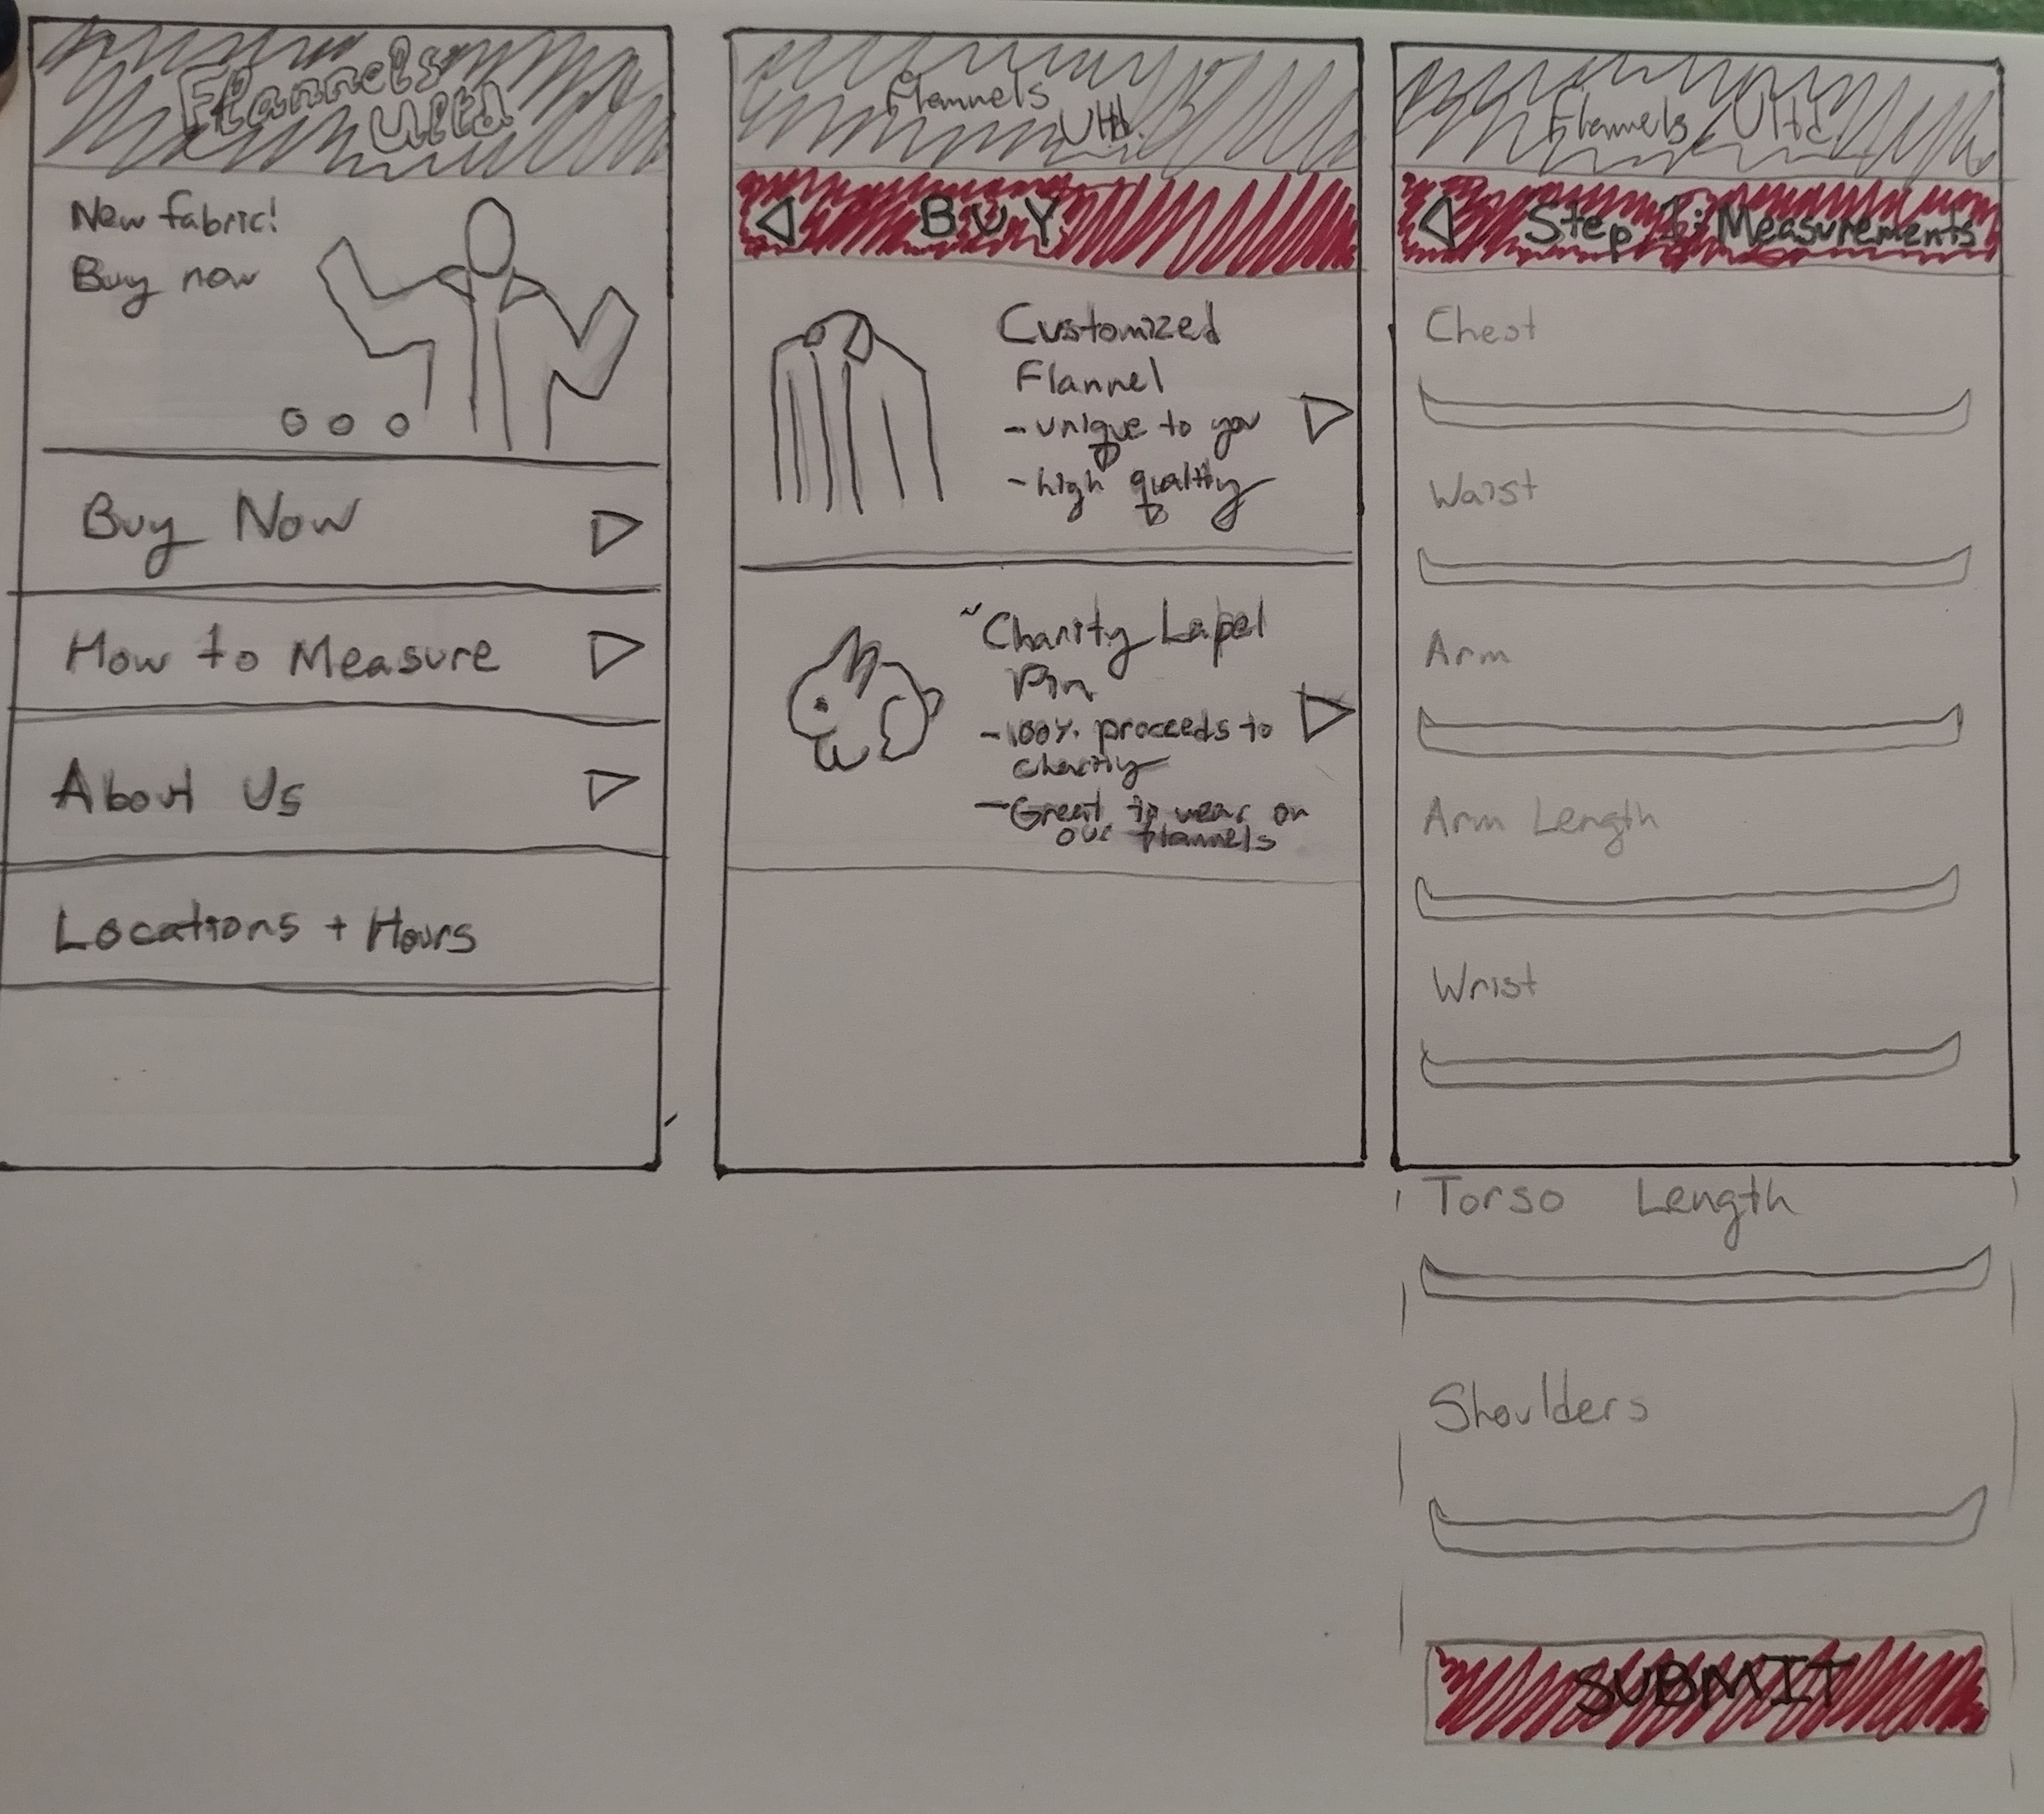 Flannels
Ultd
New fabric!
Buy now
Buy Now
How to Measure
About Us
Locations + Hours
Flannels
Ultd.
BUY
Customized
Flannel
- unique to you
- high quality
~Charity Lapel
Pin
- 100% proceeds to
charity
- Great to wear on
our flannels
Flannels Ultd
Step 1: Measurements
Chest
Waist
Arm
Arm Length
Wrist
Torso Length
Shoulders
SUBMIT